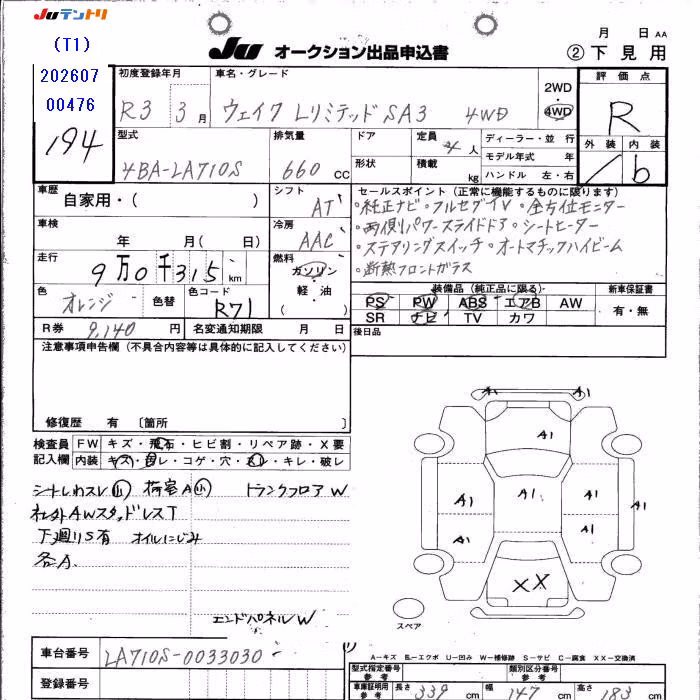 Juテントリ
(T1)
202607
00476
194
JU オークション出品申込書
月 日 AA
② 下見用
初度登録年月
R3 3月
車名・グレード
ウェイク LリミテッドSA3 4WD
2WD
4WD
評価点
R
外装 内装
b
型式
4BA-LA710S
排気量
660 CC
ドア
形状
定員 4人
積載 kg
ディーラー・並行
モデル年式 年
ハンドル 左・右
車歴
自家用・( )
シフト
AT
車検
年 月( 日)
冷房
AAC
走行
9万0千315 km
燃料
ガソリン
軽・油
( )
色
オレンジ
色替
色コード
R71
R券 9,140 円
名変通知期限 月 日
セールスポイント (正常に機能するものに限ります)
・純正ナビ・フルセグTV・全方位モニター
・両側パワースライドドア・シートヒーター
・ステアリングスイッチ・オートマチックハイビーム
・断熱フロントガラス
装備品 (純正品に限る)
新車保証書
PS PW ABS エアB AW
SR ナビ TV カワ
有・無
後日品
注意事項申告欄 (不具合内容等は具体的に記入してください)
修復歴 有 〔箇所 〕
検査員
記入欄
FW キズ・飛石・ヒビ割・リペア跡・X要
内装 キズ・ヨレ・コゲ・穴・ヌレ・キレ・破レ
シートしわスレ小 荷室A小 トランクフロアW
社外AWスタッドレスT
下廻りS有 オイルにじみ
各A
エンドパネルW
A1 A1
A1
A1 A1 A1 A1
A1 A1
XX
スペア
車台番号 LA710S-0033030
登録番号
A－キズ E－エクボ U－凹み W－補修跡 S－サビ C－腐食 XX－交換済
型式指定番号
参考
類別区分番号
参考
車庫証明用
参考
長さ 339 cm 幅 147 cm 高さ 183 cm